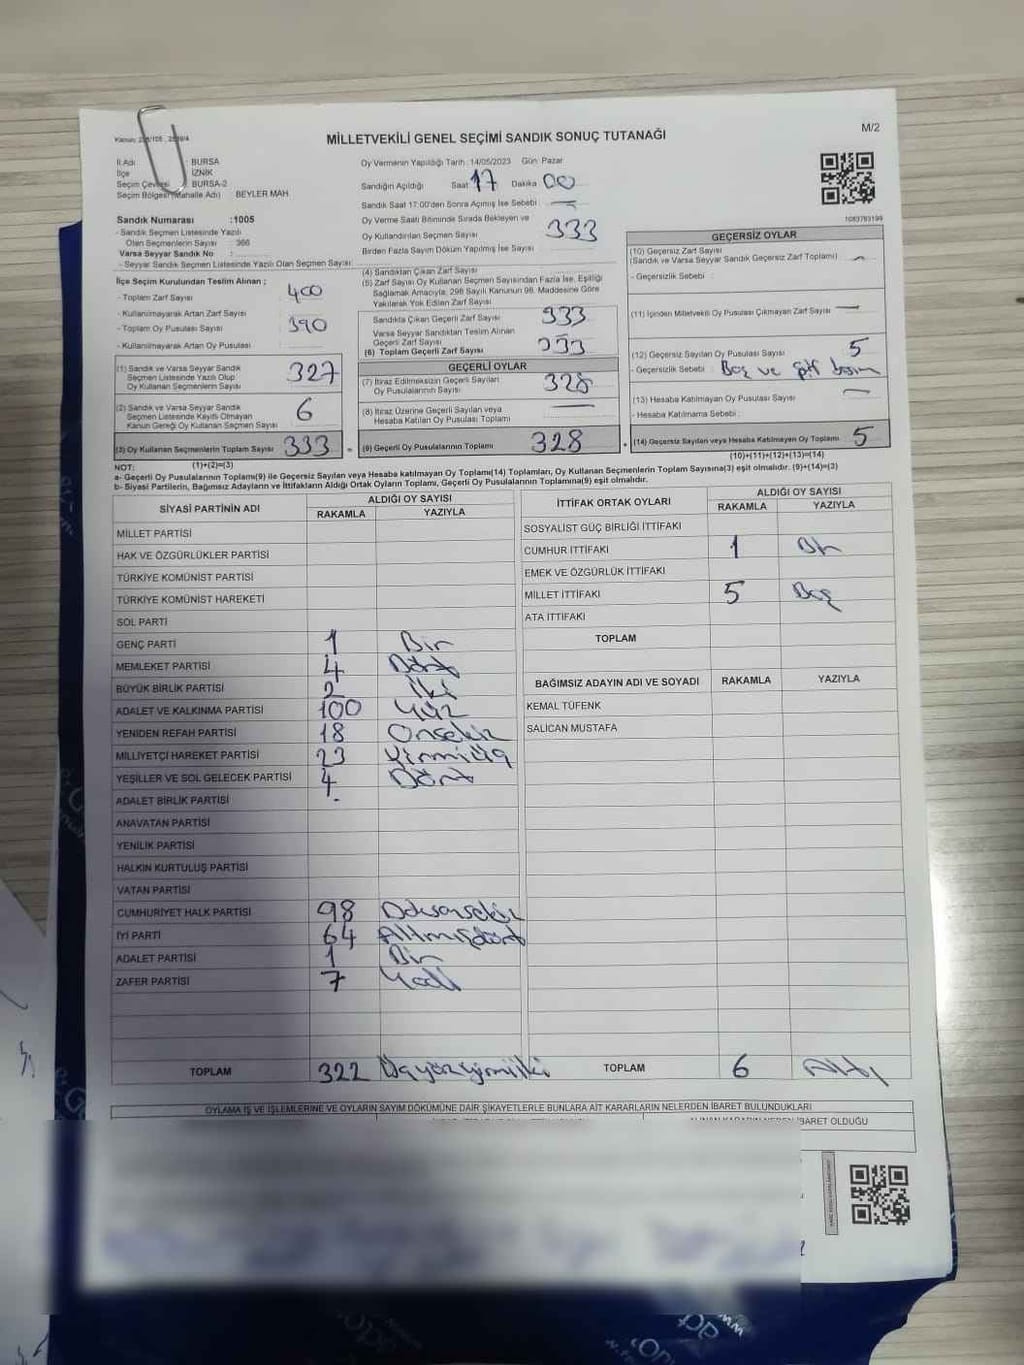 MİLLETVEKİLİ GENEL SEÇİMİ SANDIK SONUÇ TUTANAĞI
M/2
İl Adı : BURSA
İlçe : İZNİK
Seçim Çevresi : BURSA-2
Seçim Bölgesi (Mahalle Adı) : BEYLER MAH.
Oy Vermenin Yapıldığı Tarih : 14/05/2023 Gün : Pazar
Sandığın Açıldığı Saat 17 Dakika 00
Sandık Saat 17:00'den Sonra Açılmış İse Sebebi : —
Oy Verme Saati Bitiminde Sırada Bekleyen ve
Oy Kullandırılan Seçmen Sayısı 333
Birden Fazla Sayım Döküm Yapılmış İse Sayısı :
Sandık Numarası : 1005
- Sandık Seçmen Listesinde Yazılı
Olan Seçmenlerin Sayısı : 366
Varsa Seyyar Sandık No :
- Seyyar Sandık Seçmen Listesinde Yazılı Olan Seçmen Sayısı :
İlçe Seçim Kurulundan Teslim Alınan ;
- Toplam Zarf Sayısı : 400
- Kullanılmayarak Artan Zarf Sayısı :
- Toplam Oy Pusulası Sayısı : 390
- Kullanılmayarak Artan Oy Pusulası :
(1) Sandık ve Varsa Seyyar Sandık
Seçmen Listesinde Yazılı Olup
Oy Kullanan Seçmenlerin Sayısı 327
(2) Sandık ve Varsa Seyyar Sandık
Seçmen Listesinde Kayıtlı Olmayan
Kanun Gereği Oy Kullanan Seçmen Sayısı 6
(3) Oy Kullanan Seçmenlerin Toplam Sayısı 333
(1)+(2)=(3)
(4) Sandıktan Çıkan Zarf Sayısı
(5) Zarf Sayısı Oy Kullanan Seçmen Sayısından Fazla İse, Eşitliği
Sağlamak Amacıyla, 298 Sayılı Kanunun 98. Maddesine Göre
Yakılarak Yok Edilen Zarf Sayısı
Sandıkta Çıkan Geçerli Zarf Sayısı 333
Varsa Seyyar Sandıktan Teslim Alınan
Geçerli Zarf Sayısı —
(6) Toplam Geçerli Zarf Sayısı 333
GEÇERLİ OYLAR
(7) İtiraz Edilmeksizin Geçerli Sayılan
Oy Pusulalarının Sayısı 328
(8) İtiraz Üzerine Geçerli Sayılan veya
Hesaba Katılan Oy Pusulası Toplamı —
= (9) Geçerli Oy Pusulalarının Toplamı 328
1083783199
GEÇERSİZ OYLAR
(10) Geçersiz Zarf Sayısı
(Sandık ve Varsa Seyyar Sandık Geçersiz Zarf Toplamı) —
- Geçersizlik Sebebi :
(11) İçinden Milletvekili Oy Pusulası Çıkmayan Zarf Sayısı —
(12) Geçersiz Sayılan Oy Pusulası Sayısı 5
- Geçersizlik Sebebi : Boş ve
(13) Hesaba Katılmayan Oy Pusulası Sayısı —
- Hesaba Katılmama Sebebi :
+ (14) Geçersiz Sayılan veya Hesaba Katılmayan Oy Toplamı 5
(10)+(11)+(12)+(13)=(14)
NOT:
a- Geçerli Oy Pusulalarının Toplamı(9) ile Geçersiz Sayılan veya Hesaba katılmayan Oy Toplamı(14) Toplamları, Oy Kullanan Seçmenlerin Toplam Sayısına(3) eşit olmalıdır. (9)+(14)=(3)
b- Siyasi Partilerin, Bağımsız Adayların ve İttifakların Aldığı Ortak Oyların Toplamı, Geçerli Oy Pusulalarının Toplamına(9) eşit olmalıdır.
SİYASİ PARTİNİN ADI ALDIĞI OY SAYISI
RAKAMLA YAZIYLA
MİLLET PARTİSİ
HAK VE ÖZGÜRLÜKLER PARTİSİ
TÜRKİYE KOMÜNİST PARTİSİ
TÜRKİYE KOMÜNİST HAREKETİ
SOL PARTİ
GENÇ PARTİ 1 Bir
MEMLEKET PARTİSİ 4 Dört
BÜYÜK BİRLİK PARTİSİ 2 İki
ADALET VE KALKINMA PARTİSİ 100 Yüz
YENİDEN REFAH PARTİSİ 18 Onsekiz
MİLLİYETÇİ HAREKET PARTİSİ 23 Yirmiüç
YEŞİLLER VE SOL GELECEK PARTİSİ 4 Dört
ADALET BİRLİK PARTİSİ
ANAVATAN PARTİSİ
YENİLİK PARTİSİ
HALKIN KURTULUŞ PARTİSİ
VATAN PARTİSİ
CUMHURİYET HALK PARTİSİ 98 Doksansekiz
İYİ PARTİ 64 Altmışdört
ADALET PARTİSİ 1 Bir
ZAFER PARTİSİ 7 Yedi
TOPLAM 322 Üçyüzyirmiiki
İTTİFAK ORTAK OYLARI ALDIĞI OY SAYISI
RAKAMLA YAZIYLA
SOSYALİST GÜÇ BİRLİĞİ İTTİFAKI
CUMHUR İTTİFAKI 1 Bir
EMEK VE ÖZGÜRLÜK İTTİFAKI
MİLLET İTTİFAKI 5 Beş
ATA İTTİFAKI
TOPLAM
BAĞIMSIZ ADAYIN ADI VE SOYADI RAKAMLA YAZIYLA
KEMAL TÜFENK
SALİCAN MUSTAFA
TOPLAM 6 Altı
OYLAMA İŞ VE İŞLEMLERİNE VE OYLARIN SAYIM DÖKÜMÜNE DAİR ŞİKAYETLERLE BUNLARA AİT KARARLARIN NELERDEN İBARET BULUNDUKLARI
İBARET OLDUĞU